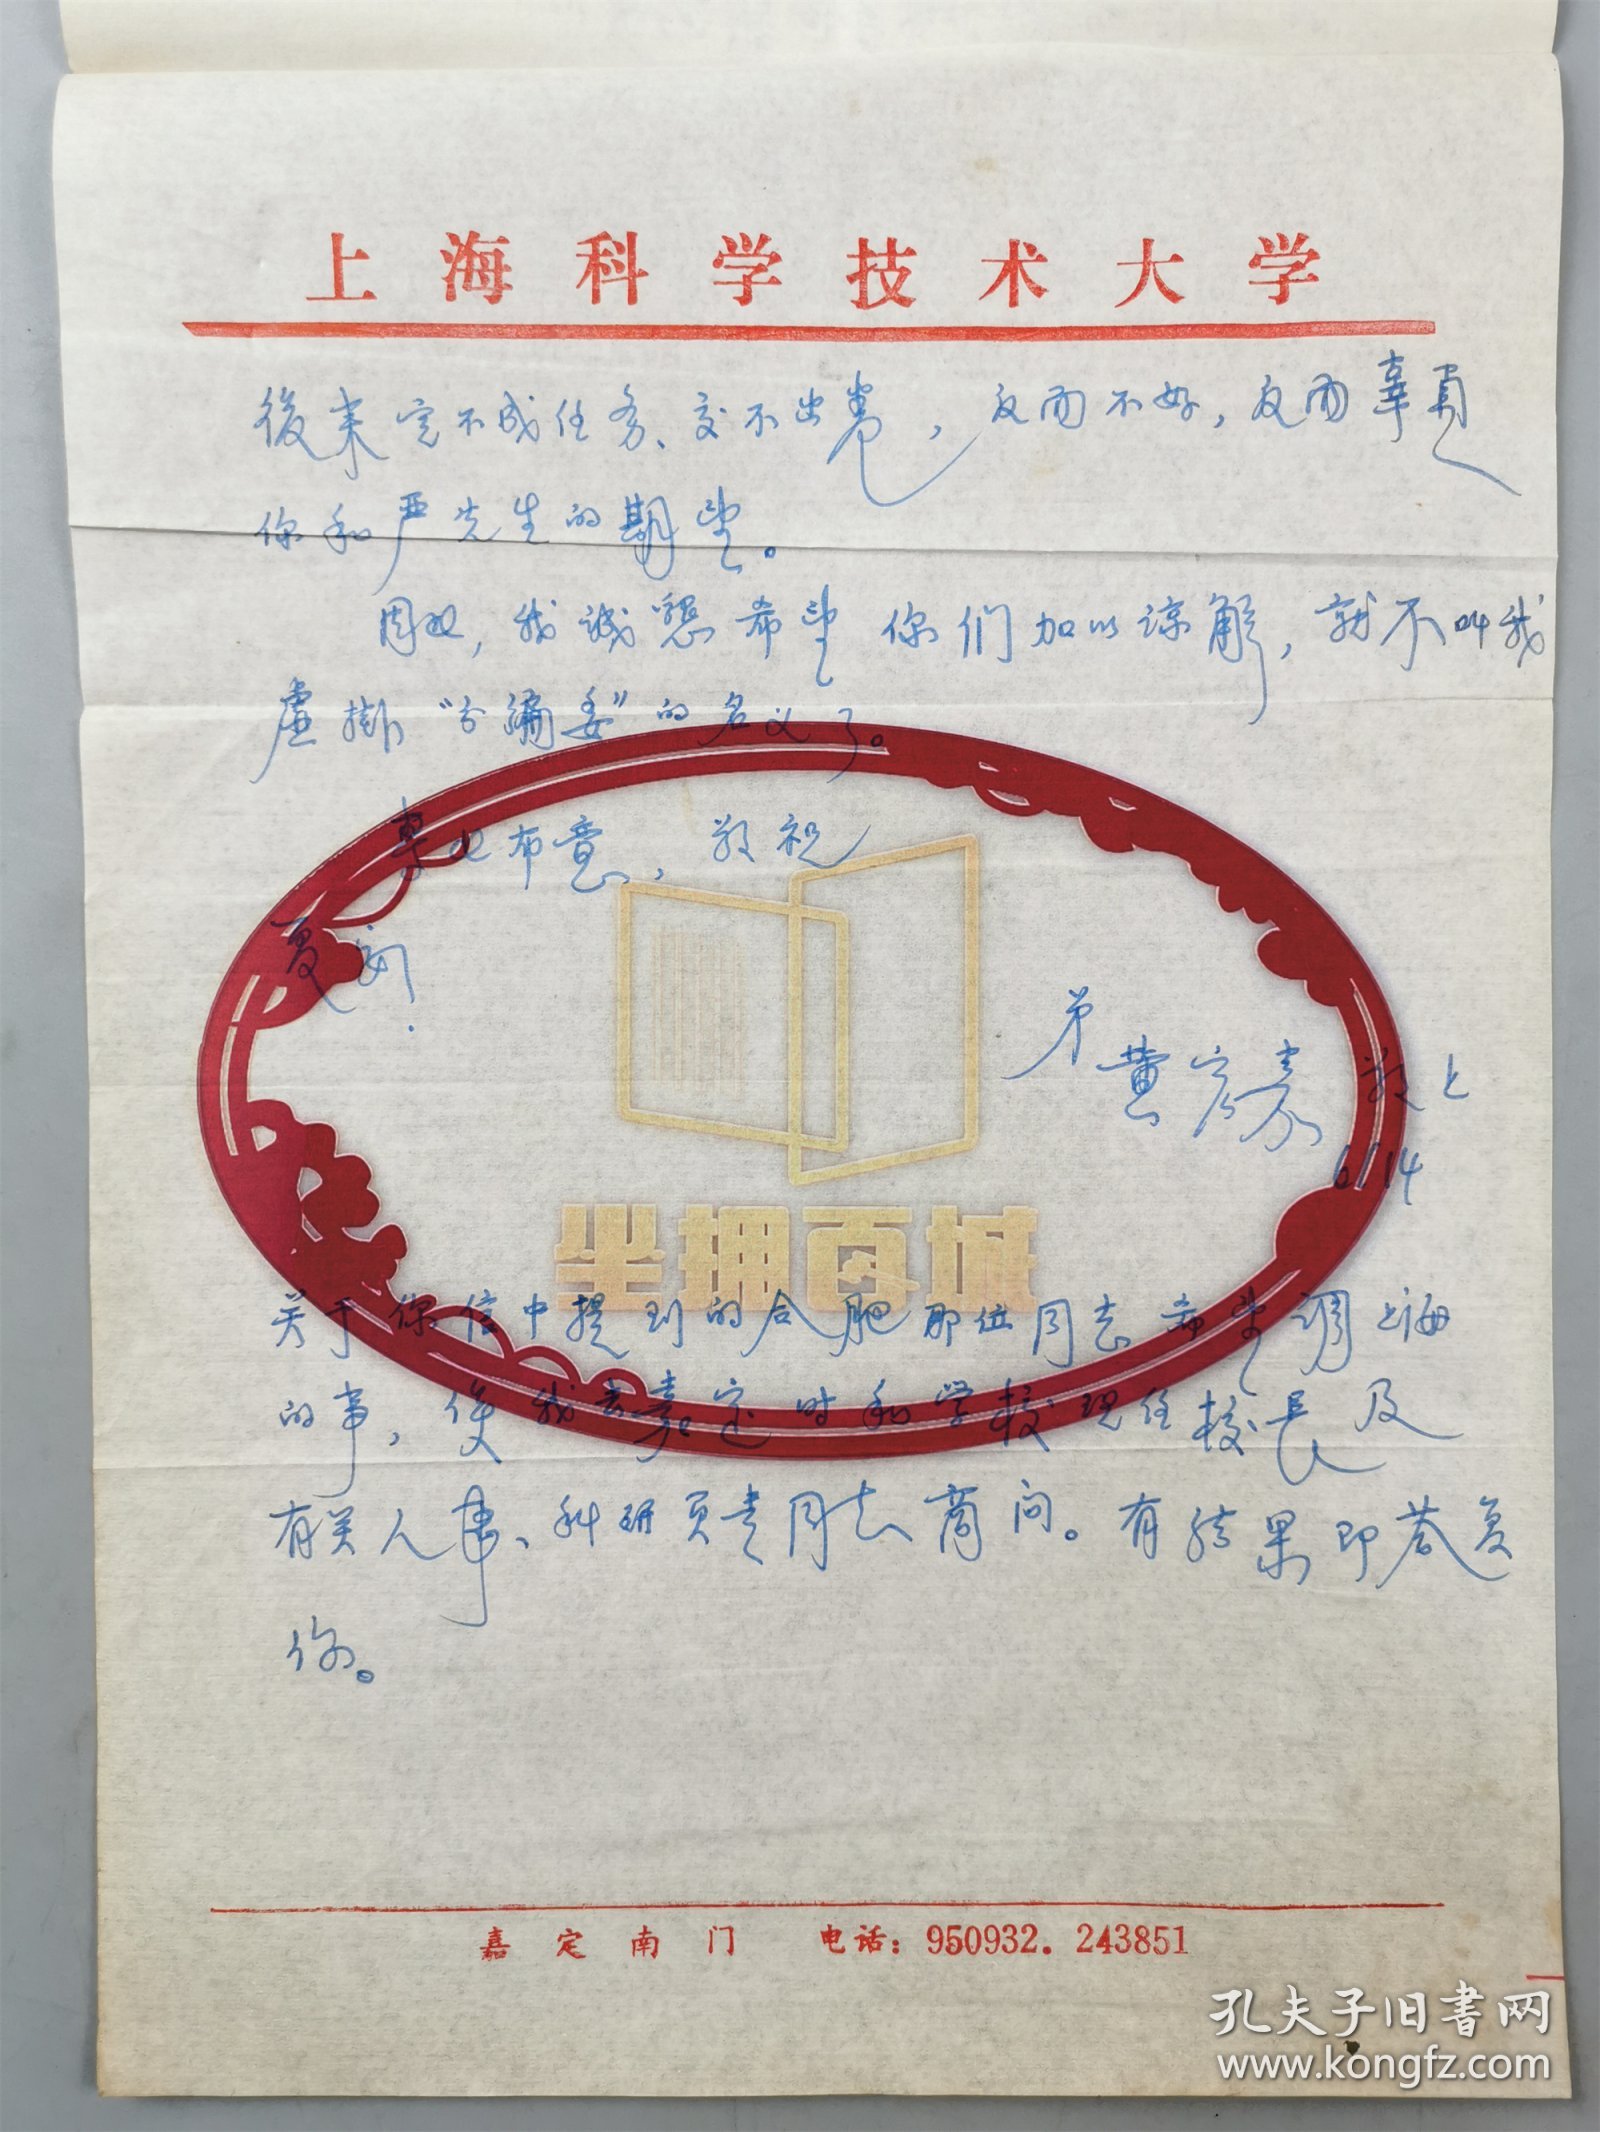 上海科学技术大学
後来完不成任务、交不出卷，反而不好，反而辜負
你和严先生的期望。
因此，我诚懇希望你们加以谅解，就不叫我
虚掛“分編委”的名义了。
专此布意，敬祝
夏安！
弟
黄宏嘉 敬上
6/14
坐拥百城
关于你信中提到的合肥那位同志希望调上海
的事，俟我去嘉定时和学校现任校長及
有关人事、科研负责同志商问。有结果即答复
你。
嘉定南门 电话：950932.243851
孔夫子旧书网
www.kongfz.com